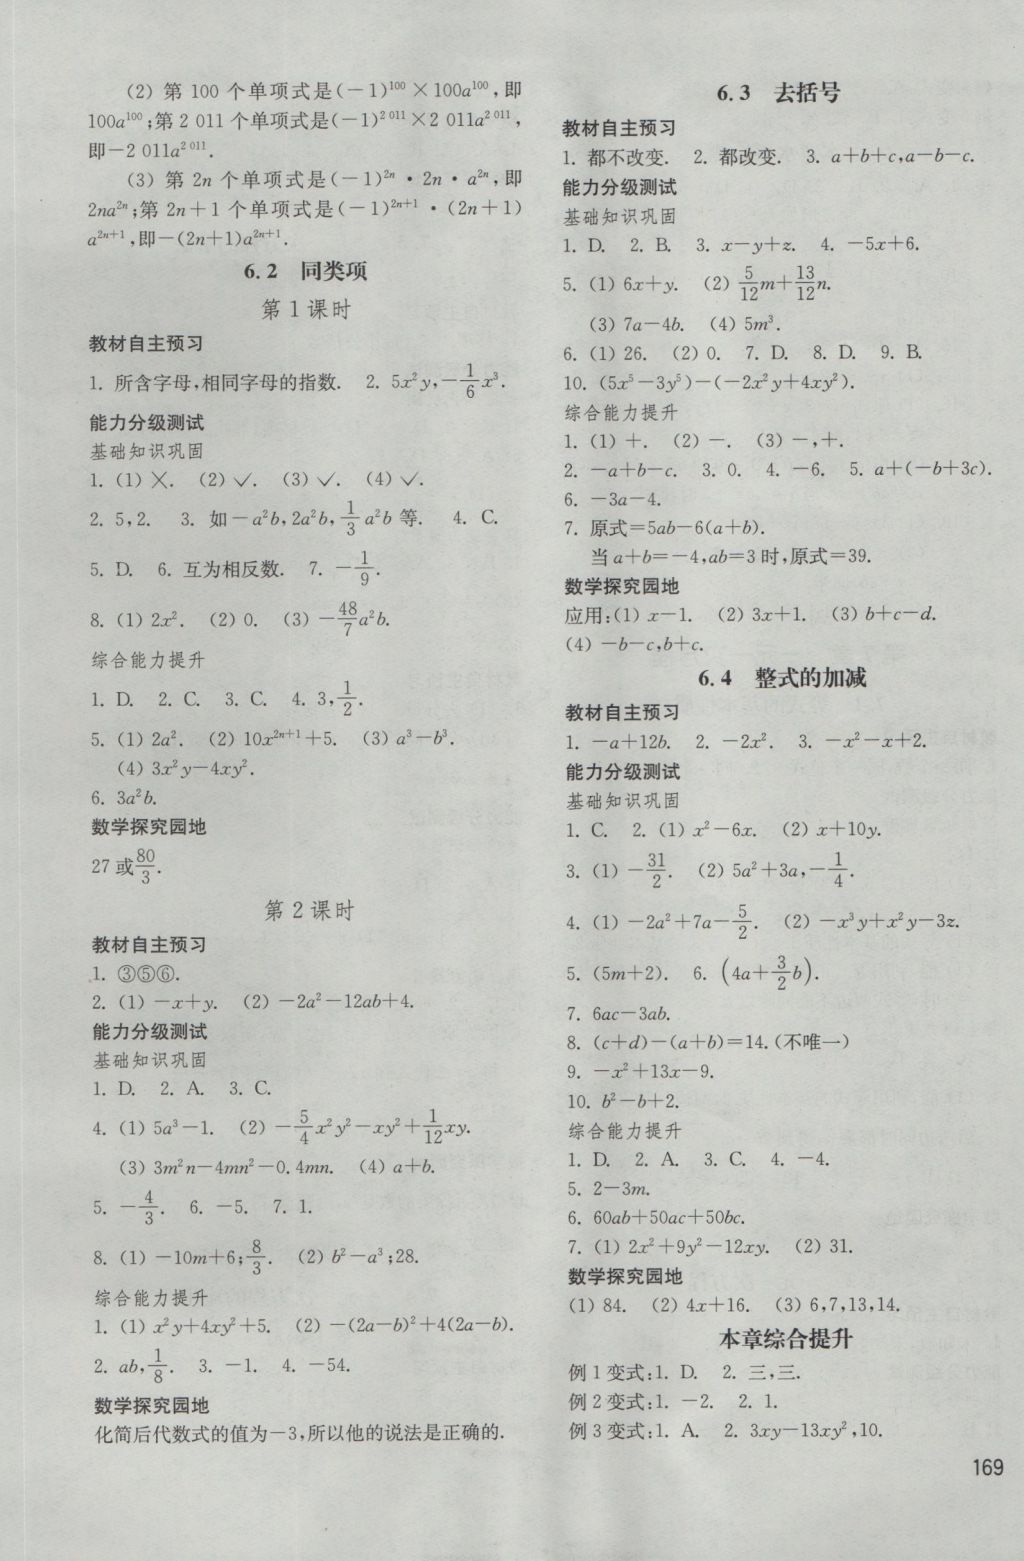 (2) 第 100 个单项式是(－1)¹⁰⁰×100a¹⁰⁰,即
100a¹⁰⁰;第 2 011 个单项式是(－1)²⁰¹¹×2 011a²⁰¹¹,
即－2 011a²⁰¹¹.
(3) 第 2n 个单项式是(－1)²ⁿ·2n·a²ⁿ,即
2na²ⁿ;第 2n＋1 个单项式是(－1)²ⁿ⁺¹·(2n＋1)
a²ⁿ⁺¹,即－(2n＋1)a²ⁿ⁺¹.
6.2 同类项
第 1 课时
教材自主预习
1. 所含字母,相同字母的指数. 2. 5x²y,－1/6x³.
能力分级测试
基础知识巩固
1. (1) ×. (2) √. (3) √. (4) √.
2. 5,2. 3. 如－a²b,2a²b,1/3a²b 等. 4. C.
5. D. 6. 互为相反数. 7. －1/9.
8. (1) 2x². (2) 0. (3) －48/7a²b.
综合能力提升
1. D. 2. C. 3. C. 4. 3,1/2.
5. (1) 2a². (2) 10x²ⁿ⁺¹＋5. (3) a³－b³.
(4) 3x²y－4xy².
6. 3a²b.
数学探究园地
27 或80/3.
第 2 课时
教材自主预习
1. ③⑤⑥.
2. (1) －x＋y. (2) －2a²－12ab＋4.
能力分级测试
基础知识巩固
1. D. 2. A. 3. C.
4. (1) 5a³－1. (2) －5/4x²y²－xy²＋1/12xy.
(3) 3m²n－4mn²－0.4mn. (4) a＋b.
5. －4/3. 6. －5. 7. 1.
8. (1) －10m＋6;8/3. (2) b²－a³;28.
综合能力提升
1. (1) x²y＋4xy²＋5. (2) －(2a－b)²＋4(2a－b).
2. ab,1/8. 3. －1. 4. －54.
数学探究园地
化简后代数式的值为－3,所以他的说法是正确的.
6.3 去括号
教材自主预习
1. 都不改变. 2. 都改变. 3. a＋b＋c,a－b－c.
能力分级测试
基础知识巩固
1. D. 2. B. 3. x－y＋z. 4. －5x＋6.
5. (1) 6x＋y. (2) 5/12m＋13/12n.
(3) 7a－4b. (4) 5m³.
6. (1) 26. (2) 0. 7. D. 8. D. 9. B.
10. (5x⁵－3y⁵)－(－2x²y＋4xy²).
综合能力提升
1. (1) ＋. (2) －. (3) －,＋.
2. －a＋b－c. 3. 0. 4. －6. 5. a＋(－b＋3c).
6. －3a－4.
7. 原式＝5ab－6(a＋b).
当 a＋b＝－4,ab＝3 时,原式＝39.
数学探究园地
应用:(1) x－1. (2) 3x＋1. (3) b＋c－d.
(4) －b－c,b＋c.
6.4 整式的加减
教材自主预习
1. －a＋12b. 2. －2x². 3. －x²－x＋2.
能力分级测试
基础知识巩固
1. C. 2. (1) x²－6x. (2) x＋10y.
3. (1) －31/2. (2) 5a²＋3a,－1/4.
4. (1) －2a²＋7a－5/2. (2) －x³y＋x²y－3z.
5. (5m＋2). 6. (4a＋3/2b).
7. 6ac－3ab.
8. (c＋d)－(a＋b)＝14.(不唯一)
9. －x²＋13x－9.
10. b²－b＋2.
综合能力提升
1. D. 2. A. 3. C. 4. －4.
5. 2－3m.
6. 60ab＋50ac＋50bc.
7. (1) 2x²＋9y²－12xy. (2) 31.
数学探究园地
(1) 84. (2) 4x＋16. (3) 6,7,13,14.
本章综合提升
例 1 变式:1. D. 2. 三,三.
例 2 变式:1. －2. 2. 1.
例 3 变式:1. A. 2. 3xy－13xy²,10.
169